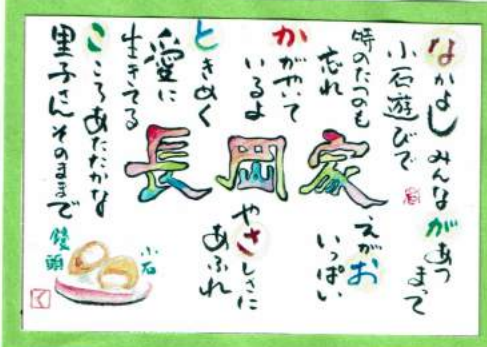 なかよしみんながあつまって
小石遊びで
時のたつのも
忘れ
かがやいて
いるよ
ときめく
愛に
生きてる
こころあたたかな
里子さんそのままで
長岡家
えがお
いっぱい
やさしさに
あふれ
小石
饅頭